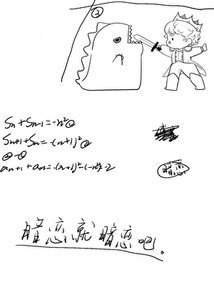 ②
Sn+Sn-1=-n²①
Sn+1+Sn=-(n+1)²②
②-①
an+1+an=-(n+1)²-(-n²)=-2
暗恋
暗恋就暗恋吧。